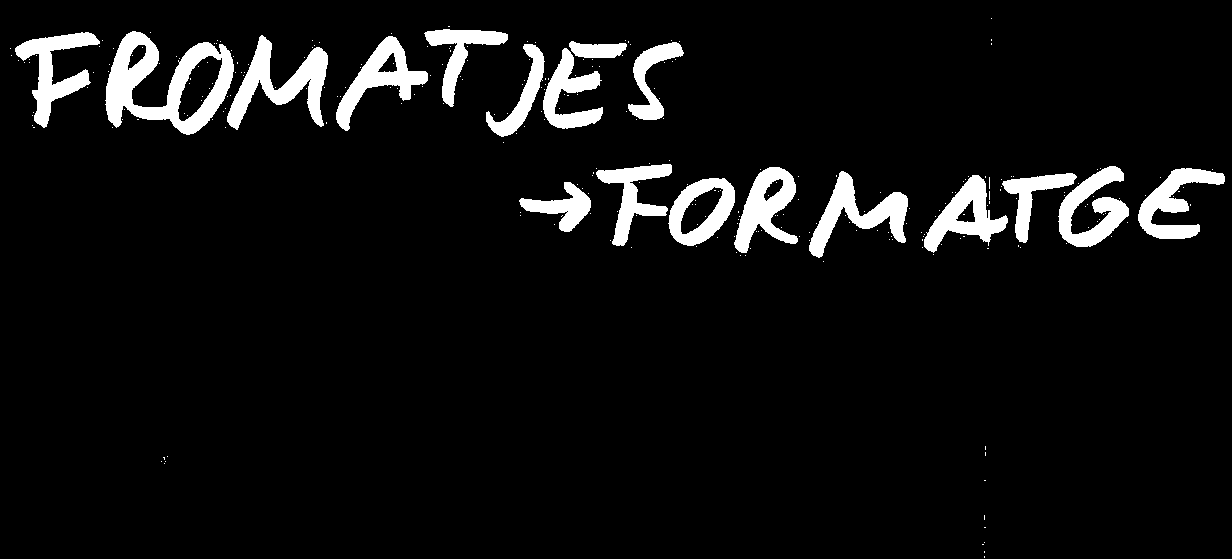 FROMATJES
→FORMATGE